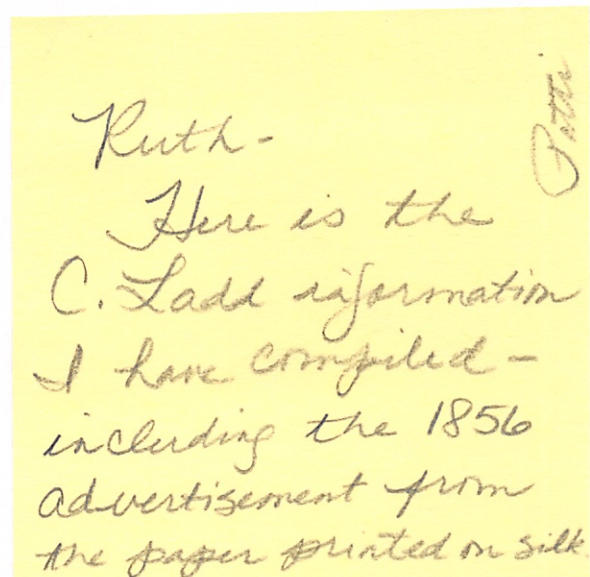 Ruth-
Here is the
C. Ladd information
I have compiled -
including the 1856
advertisement from
the paper printed on silk.
Patti